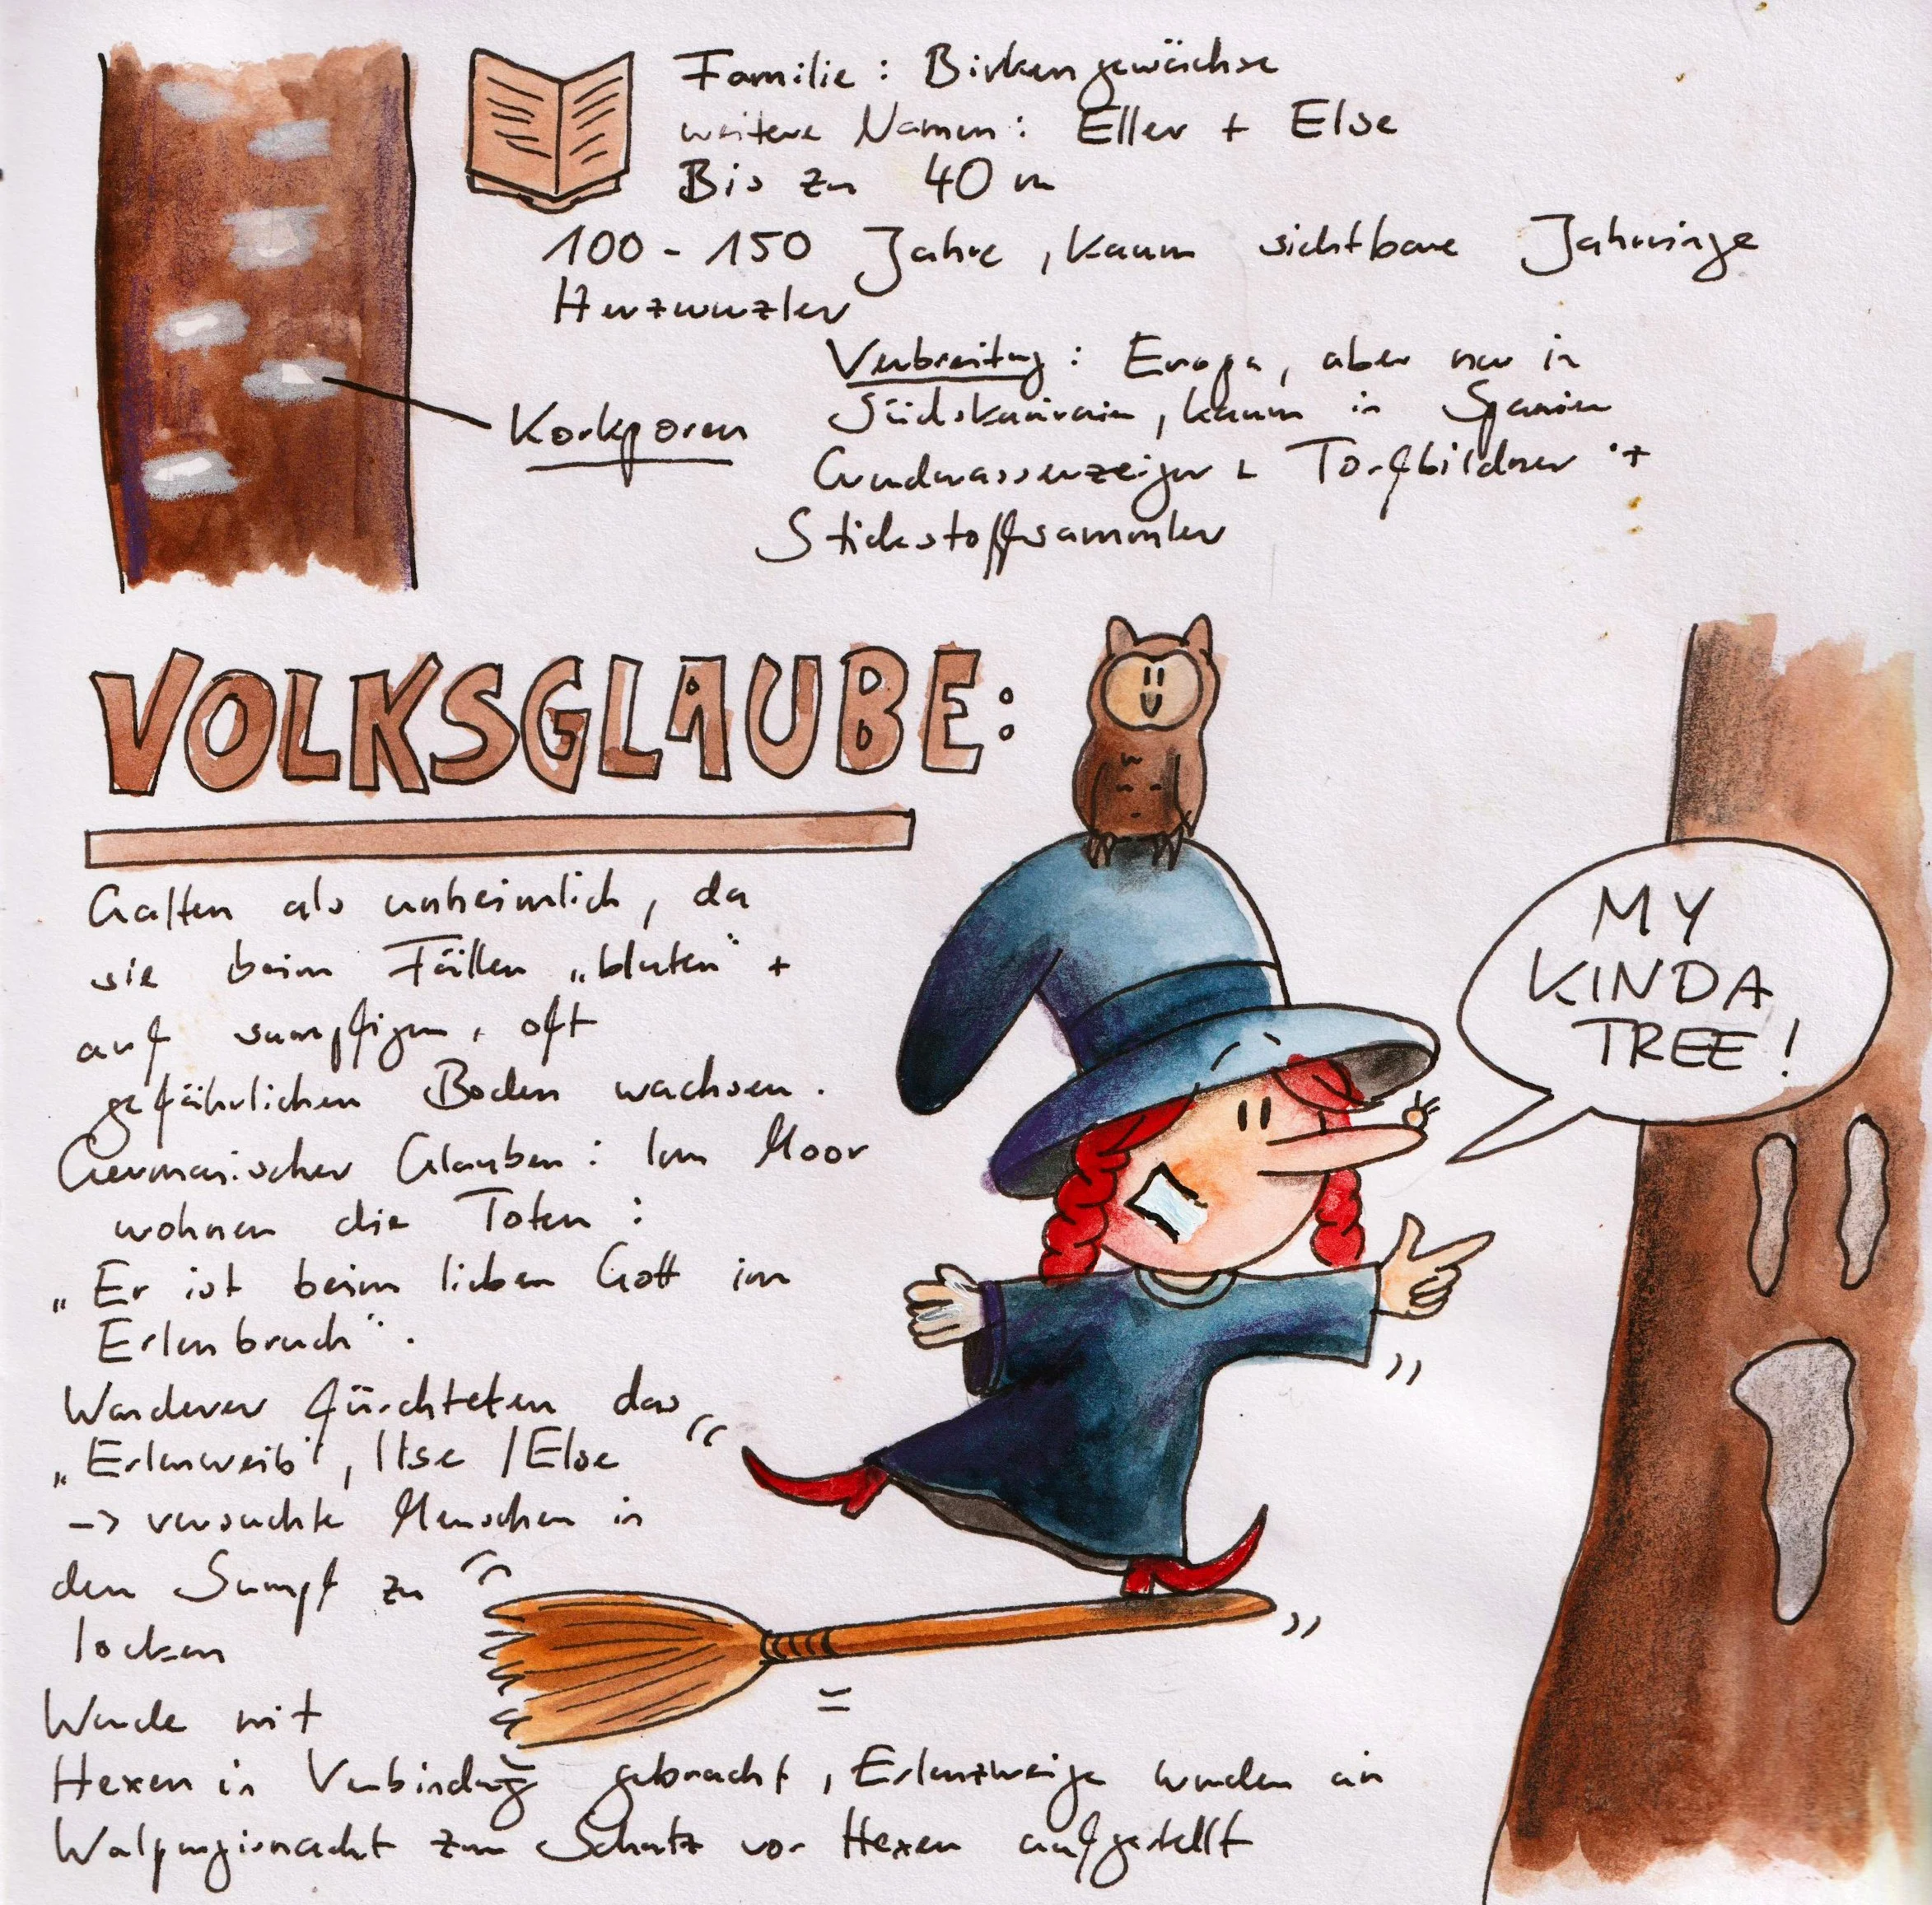 Familie: Birkengewächse
weitere Namen: Eller + Else
Bis zu 40 m
100 - 150 Jahre, kaum sichtbare Jahrringe
Herzwurzler
Verbreitung: Europa, aber nur in
Südskandinavien, kaum in Spanien
Korkporen
Grundwasserzeiger + Torfbildner +
Stickstoffsammler
VOLKSGLAUBE:
Galten als unheimlich, da
sie beim Fällen „bluten“ +
auf sumpfigem, oft
gefährlichen Boden wachsen.
Germanischer Glauben: Im Moor
wohnen die Toten:
„Er ist beim lieben Gott im
Erlenbruch“.
Wanderer fürchteten das
„Erlenweib“, Ilse / Else
-> versuchte Menschen in
den Sumpf zu
locken
Wurde mit
Hexen in Verbindung gebracht, Erlenzweige wurden an
Walpurgisnacht zum Schutz vor Hexen aufgestellt
MY
KINDA
TREE!